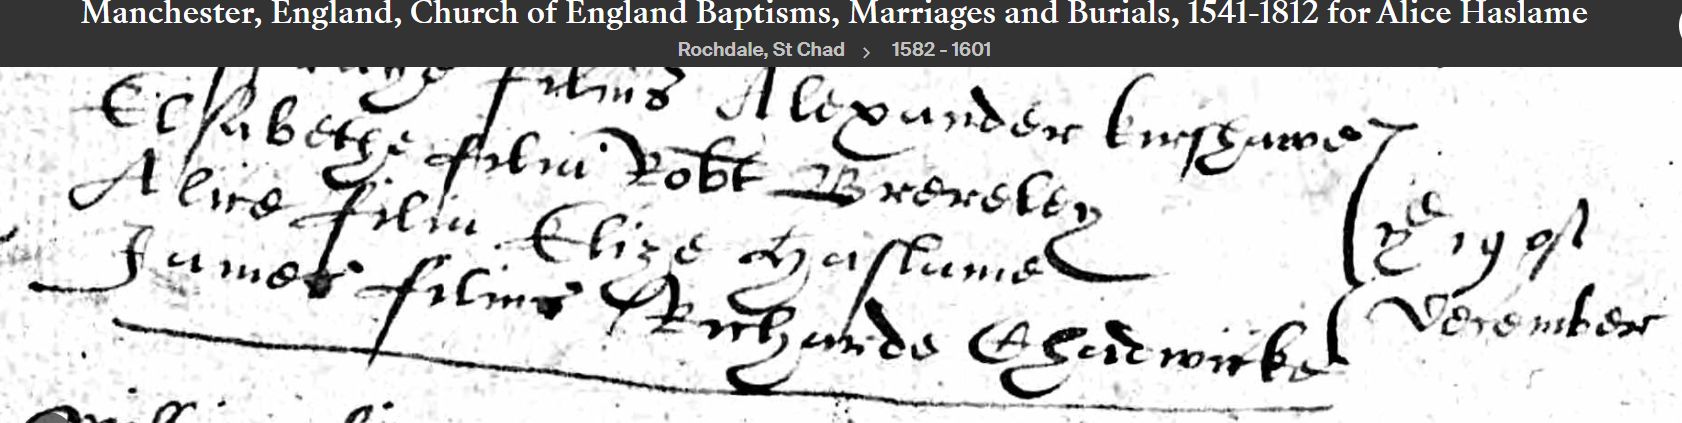 Manchester, England, Church of England Baptisms, Marriages and Burials, 1541-1812 for Alice Haslame
Rochdale, St Chad › 1582 - 1601
filius Alexander kershawe
Elsabethe filia Robt Brereley
Alice filia Elize Haslame
James filius Richarde Chadwicke
ye 19 of
December